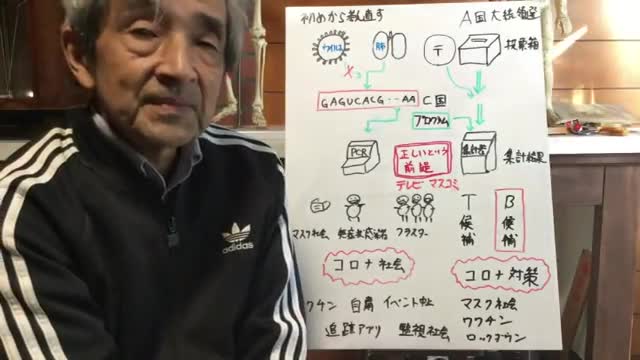 初めから数直す
A国大統領選
ウイルス
肺
〒
投票箱
X
GAGUCACG…AA
C国
プログラム
PCR
正しいという
前提
集計器
集計結果
テレビ マスコミ
マスク社会
無症状感染者
クラスター
T
候補
B
候補
コロナ社会
コロナ対策
クチン
自粛
イベント中止
マスク社会
追跡アプリ
監視社会
ワクチン
ロックダウン
adidas